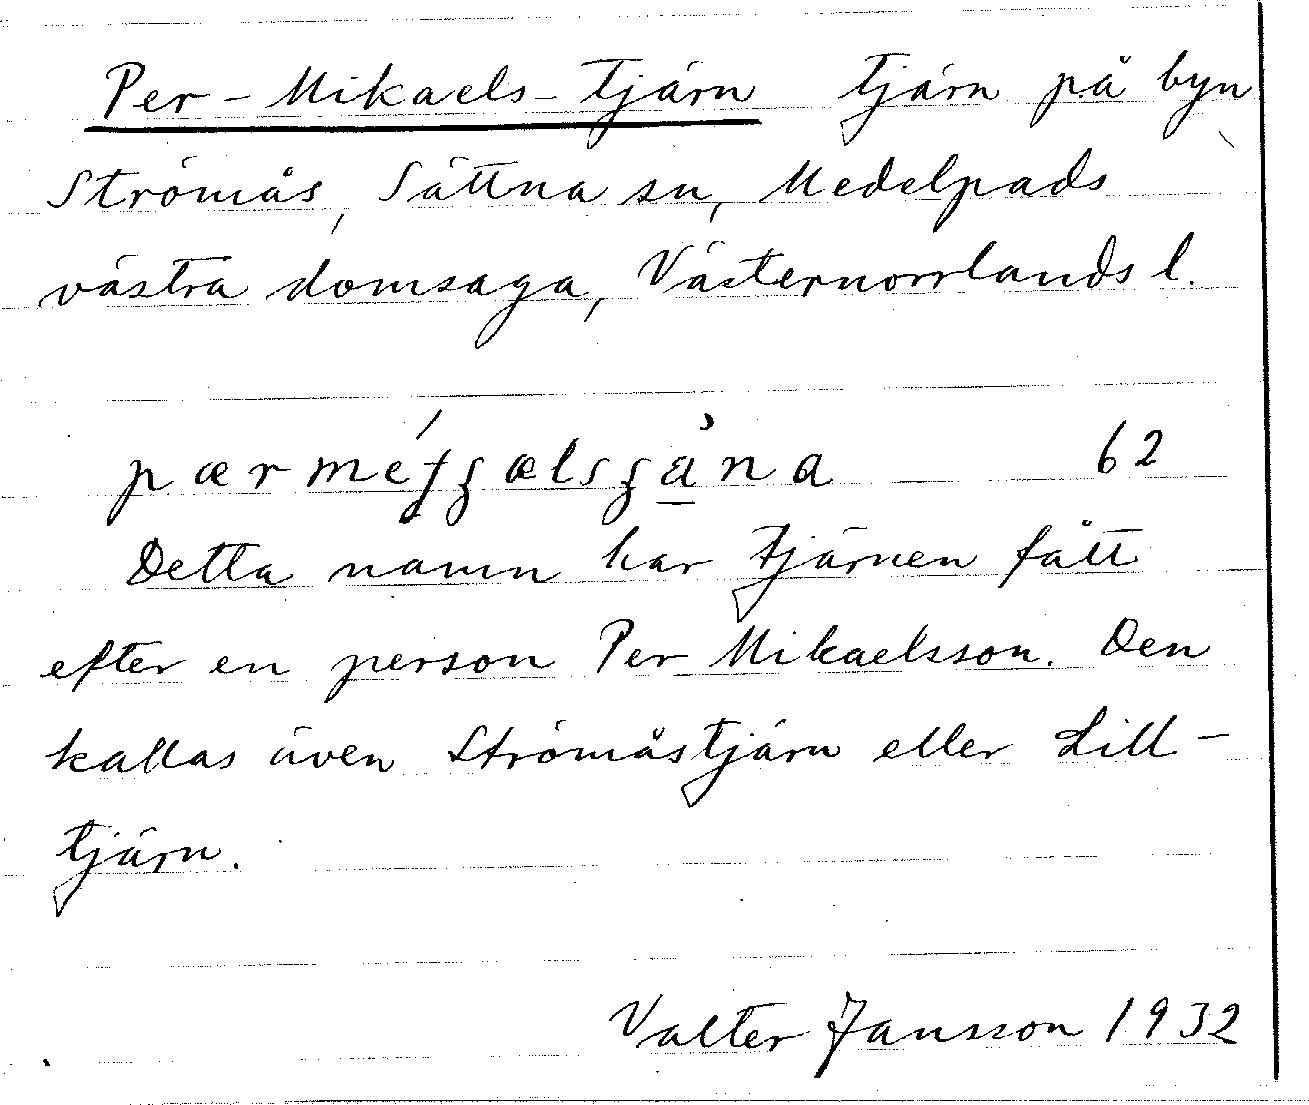 Per-Mikaels-tjärn tjärn på byn
Strömås, Sättna sn, Medelpads
västra domsaga, Västernorrlands l.
62
Detta namn har tjärnen fått
efter en person Per Mikaelsson. Den
kallas även Strömåstjärn eller Lill-
tjärn.
Valter Jansson 1932